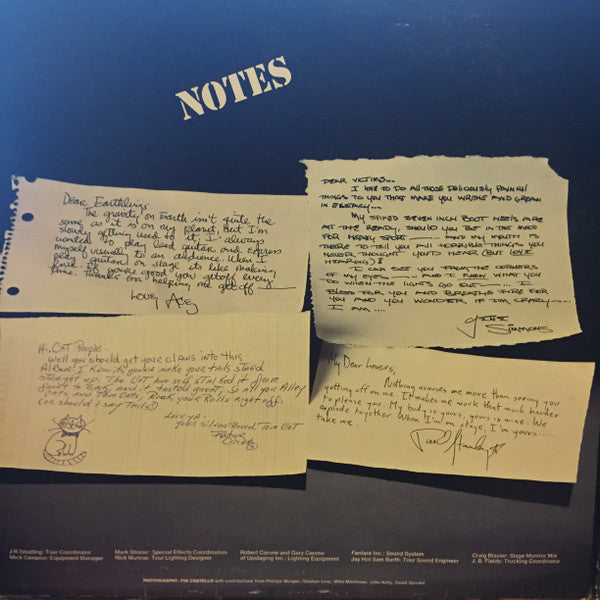 NOTES
Dear Earthlings
The gravity on Earth isn't quite the
same as it is on my planet, but I'm
slowly getting used to it, I always
wanted to play lead guitar and Express
myself visually to an audience. When I
play guitar on stage its like making
love. If you're good you getoff every
time. thanks for helping me getoff
Love, Ace
DEAR VICTIMS...
I LOVE TO DO ALL THOSE DELICIOUSLY PAINFUL
THINGS TO YOU THAT MAKE YOU WRITHE AND GROAN
IN ECSTACY...
MY SPIKED SEVEN INCH BOOT HEELS ARE
AT THE READY, SHOULD YOU BE IN THE MOOD
FOR HEAVY SPORT — AND MY MOUTH IS
THERE TO TELL YOU ALL HORRIBLE THINGS YOU
NEVER THOUGHT YOU'D HEAR (BUT LOVE
HEARING)!
I CAN SEE YOU FROM THE CORNERS
OF MY EYES... AND I KNOW WHAT YOU
DO WHEN THE LIGHTS GO OUT — ... I
BLEED FOR YOU AND BREATHE FIRE FOR
YOU AND YOU WONDER, IF I'M CRAZY...
I AM....
GENE
SIMMONS
Hi, CAT People-
Well you should get your claws into this
Album. I know its gonna make your tails stand
straight up. The CAT himself stalked it from
front to back and it tasted great. So all you Alley
cats and Tom Cats, Rock your Rolls Right off.
(or should I say Tails!)
Love ya-
your silver-nosed Tom CAT
Peter
Criss
My Dear Lovers,
Nothing arouses me more than seeing you
getting off on me. It makes me work that much harder
to please you. My body is yours, yours is mine. We
explode together. When I'm on stage, I'm yours....
take me.
Paul Stanley
J R Smalling: Tour Coordinator
Mick Campise: Equipment Manager
Mark Stinner: Special Effects Coordination
Rick Munroe: Tour Lighting Designer
Robert Carone and Gary Carone
of Upstaging Inc.: Lighting Equipment
Fanfare Inc.: Sound System
Jay Hot Sam Barth: Tour Sound Engineer
Craig Blazier: Stage Monitor Mix
J. B. Fields: Trucking Coordinator
PHOTOGRAPHY: FIN COSTELLO with contributions from Phillipe Morgan, Stephen Levy, Mike Martineau, John Kelly, David Spindel